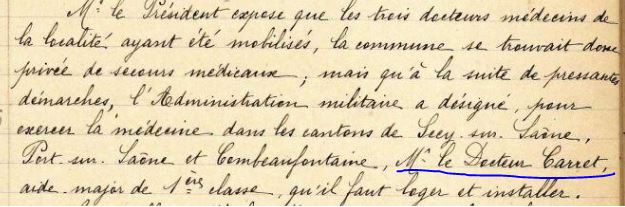 Mr. le Président expose que les trois docteurs médecins de
la localité ayant été mobilisés, la commune se trouvait donc
privée de secours médicaux ; mais qu'à la suite de pressantes
démarches, l'Administration militaire a désigné, pour
exercer la médecine dans les cantons de Scey-sur-Saône,
Port-sur-Saône et Combeaufontaine, Mr. le Docteur Carret,
aide-major de 1ère classe, qu'il faut loger et installer.